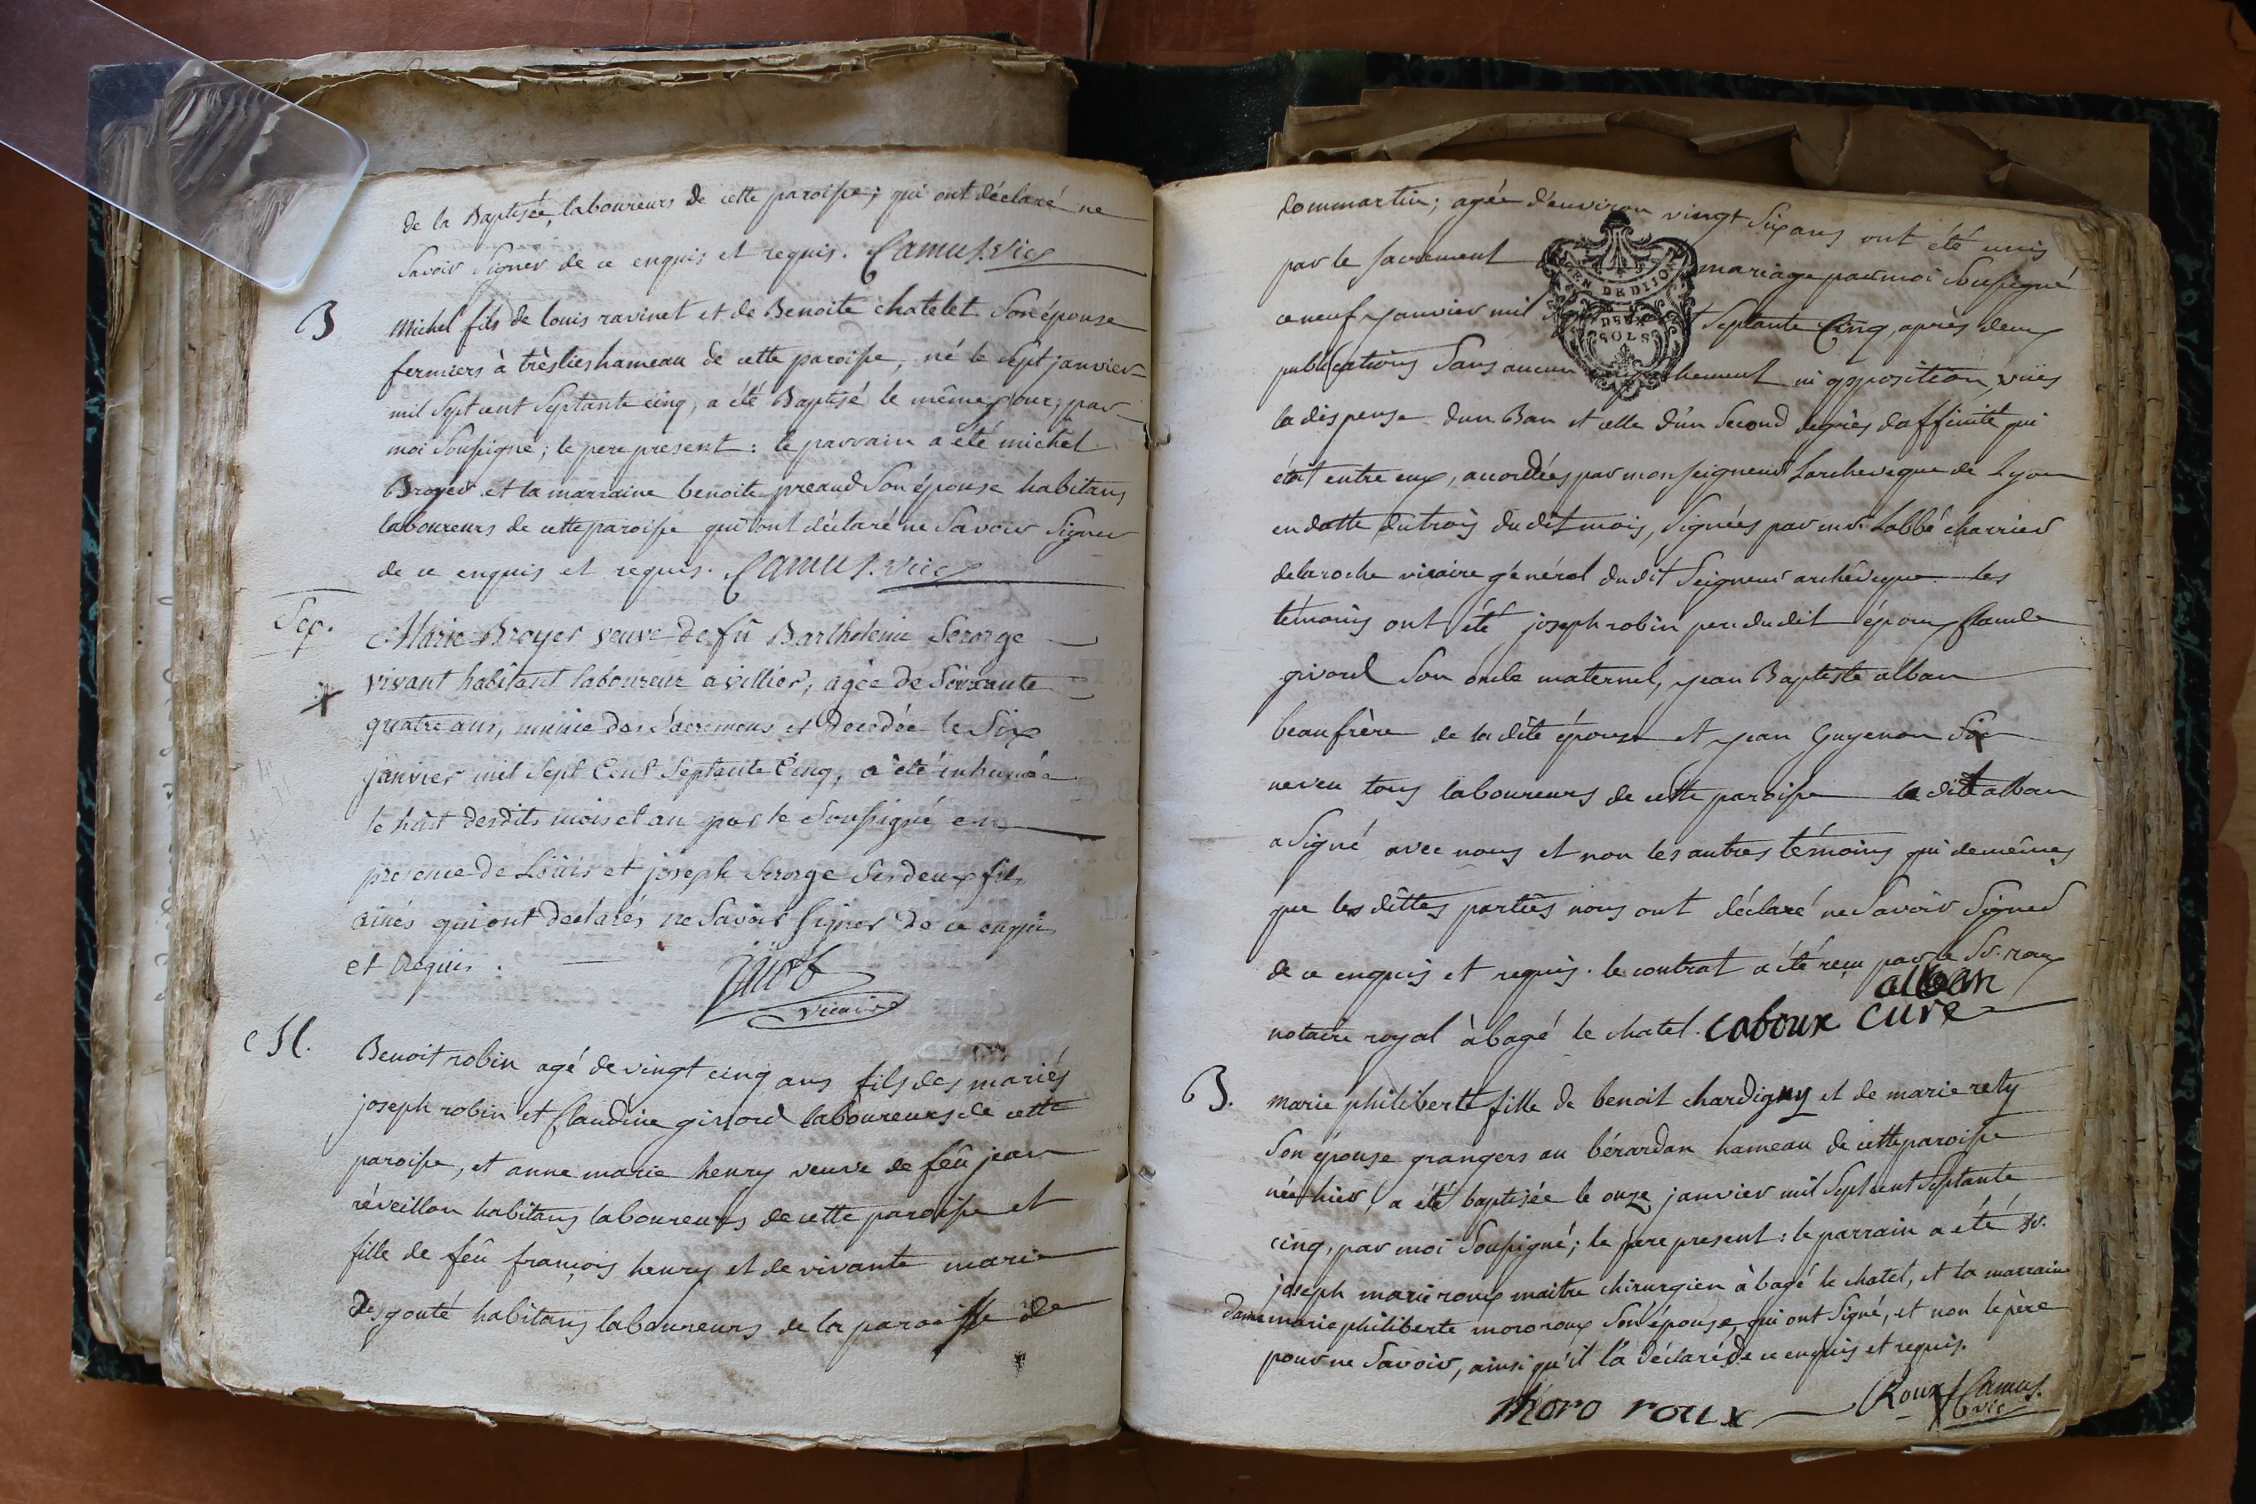 de la Baptisée, laboureurs de cette paroisse; qui ont déclaré ne
savoir signer de ce enquis et requis. Camus. vic
B
Michel fils de louis ravinet et de Benoite chatelet son épouse
fermiers à trèslies hameau de cette paroisse, né le sept janvier
mil sept cent septante cinq, a été Baptisé le même jour, par
moi soussigné; le pere present: le parrain a été michel
Broyer et la marraine benoite preaud son épouse habitans
laboureurs de cette paroisse qui ont déclaré ne savoir signer
de ce enquis et requis. Camus. vic
Sep.
Marie Broyer veuve de fû Barthelemi Serorge
vivant habitant laboureur a villier, agée de soixante
quatre ans, munie des Sacremens et decedée le six
janvier mil sept Cent Septante Cinq, a été inhumée
le huit desdits mois et an par le soussigné en
presence de Loüis et joseph Serorge ses deux fils
ainés qui ont declarés ne savoir signer de ce enquis
et Requis.
vicaire
M.
Benoit robin agé de vingt cinq ans fils des mariés
joseph robin et Claudine givord laboureurs de cette
paroisse, et anne marie henry veuve de feû jean
réveillon habitans laboureurs de cette paroisse et
fille de feû françois henry et de vivante marie
Desgouté habitans laboureurs de la paroisse de
dommartin; agée d'environ vingt six ans ont été unis
par le sacrement mariage par moi soussigné
ce neuf janvier mil septante Cinq, après deux
publications sans aucun ni opposition, vües
GEN DE DIJON
DEUX
SOLS
la dispense d'un Ban et celle d'un second degrès d'affinité qui
étoit entre eux, accordées par monseigneur L'archeveque de Lyon
en datte du trois dudit mois, signées par mr. L'abbé charrier
delaroche vicaire général dudit seigneur archêveque. les
témoins ont été joseph robin pere dudit époux Claude
givord son oncle maternel, jean Baptiste alban
beaufrère de la dite épouse et jean Guyenon son
neveu tous laboureurs de cette paroisse le dit alban
a signé avec nous et non les autres témoins qui de mêmes
que les dittes parties nous ont déclaré ne savoir signer
de ce enquis et requis. le contrat a été reçu par le Sr. roux
alban
notaire royal à bagé le chatel. caboux curé
B.
marie philiberte fille de benoit chardigny et de marie rety
son épouse grangers au bérardan hameau de cette paroisse
née hier, a été baptisée le onze janvier mil sept cent septante
cinq, par moi soussigné; le père present: le parrain a été sr.
joseph marie roux maitre chirurgien à bagé le chatel, et la marraine
dame marie philiberte moro roux son épouse, qui ont signé, et non le père
pour ne savoir, ainsi qu'il l'a déclaré de ce enquis et requis.
Moro roux Roux Camus.
vic